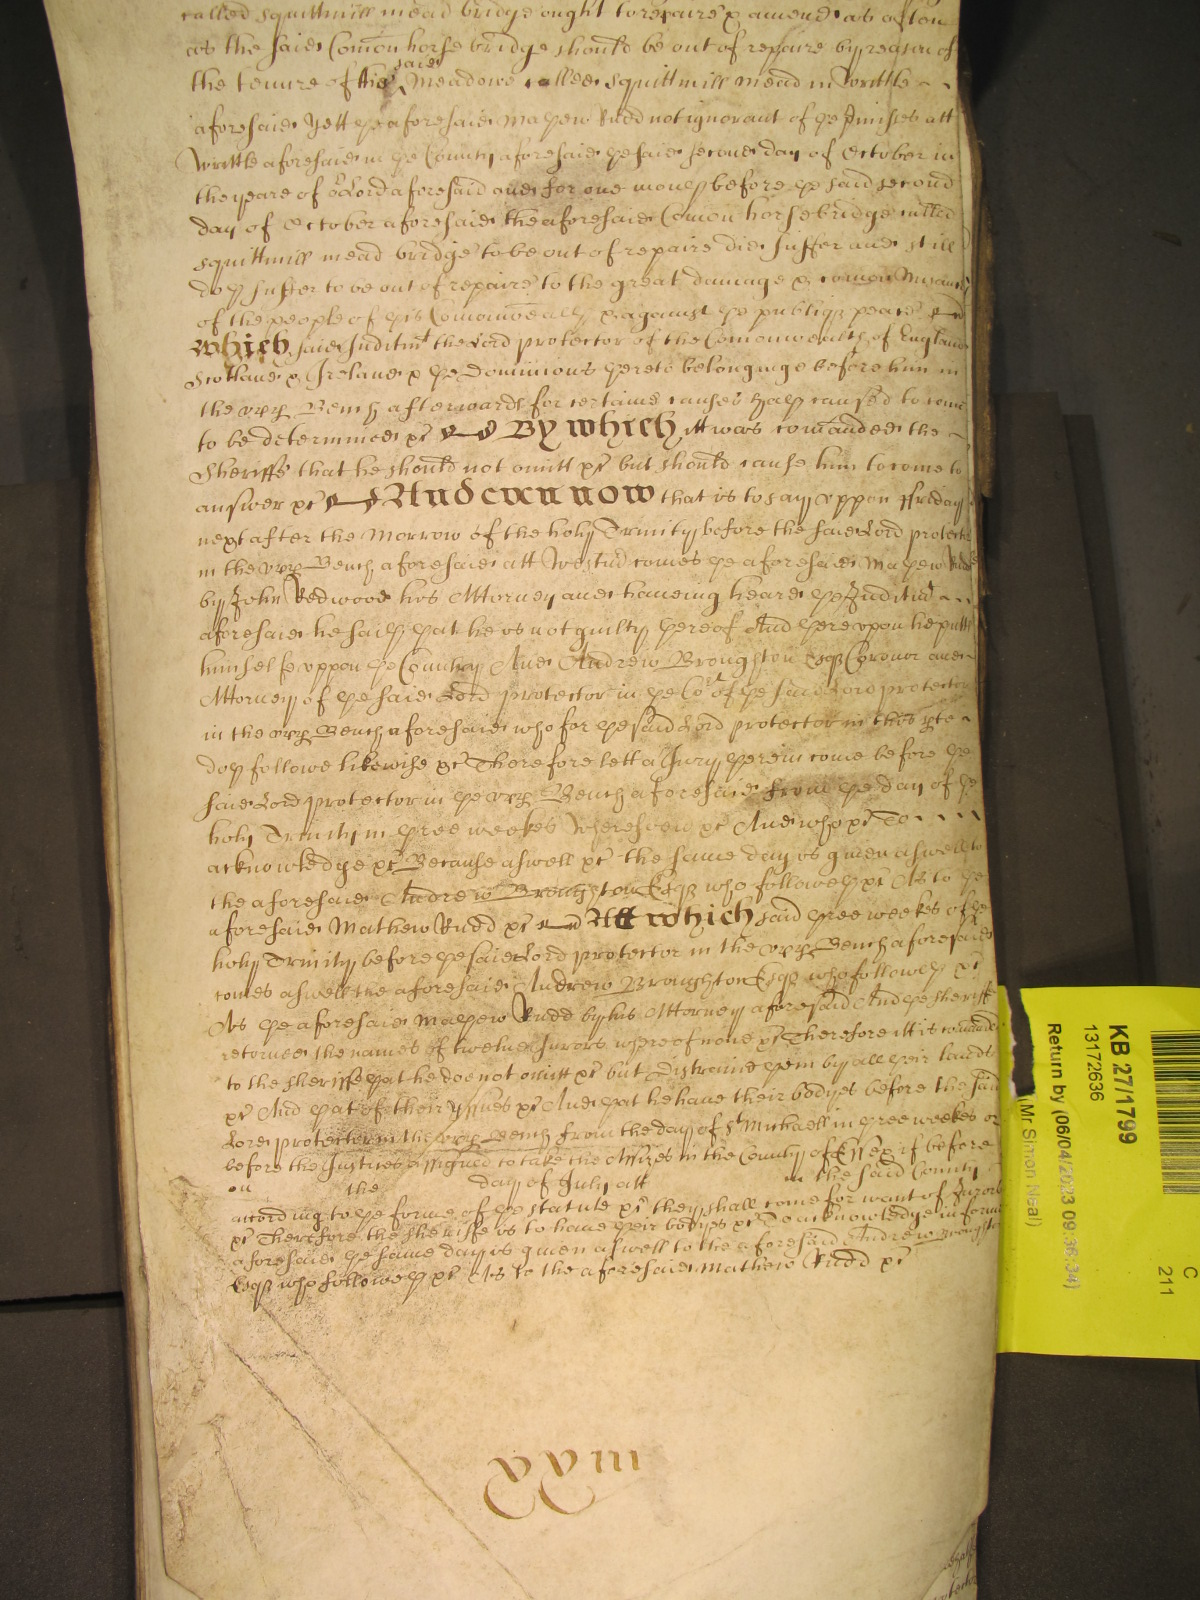 called squittmill mead bridge ought to repaire & amend as often
as the said Comon horse bridge should be out of repaire by reason of
the tenure of his said Meadowe called squittmill mead in Writtle
aforesaid Yett ye aforesaid Mathew Rudd not ignorant of ye pmisses att
Writtle aforesaid in ye County aforesaid ye said second day of October in
the yeare of or Lord aforesaid and for one moneth before ye said second
day of October aforesaid the aforesaid Comon horse bridge called
squittmill mead bridge to be out of repaire did suffer and still
doth suffer to be out of repaire to the great damage & comon Nusance
of the people of this Comonwealth & against ye publiqe peace &c
Which said Inditmt the Lord protector of the Comonwealth of England
Scotland & Ireland & ye Dominions thereto belonginge before him in
the vpp Bench afterwards for certaine causes hath caused to come
to be determined &c By which itt was comanded the
Sheriffe that he should not omitt &c but should cause him to come to
answer &c And even now that is to say vppon ffriday
next after the Morrow of the holy Trinity before the said Lord protector
in the vpp Bench aforesaid att Westm comes ye aforesaid Mathew Rudd
by John Redwood his Attorney and haueing heard ye Inditmt
aforesaid he saith yat he is not guilty thereof And therevpon he putts
himselfe vppon ye Country And Andrew Broughton Esqr Coronor and
Attorney of ye said Lord protector in ye Cot of ye said Lord protector
in the vpp Bench aforesaid who for ye said Lord protector in this pte
doth followe likewise &c Therefore lett a Jury therein come before ye
said Lord protector in ye vpp Bench aforesaid from ye day of ye
holy Trinity in three weekes Wherefore &c And who &c To
acknowledge &c Because aswell &c the same day is giuen aswell to
the aforesaid Andrew Broughton Esqr who followeth &c As to ye
aforesaid Mathew Rudd &c Att which said three weekes of ye
holy Trinity before ye said Lord protector in the vpp Bench aforesaid
comes aswell the aforesaid Andrew Broughton Esqr who followeth &c
As ye aforesaid Mathew Rudd by his Attorney aforesaid And ye Sheriffe
retorned the names of twelue Jurors whereof none &c Therefore itt is comanded
to the Sheriffe yat he doe not omitt &c but Distraine them by all their lands
&c And yat of their yssues &c And yat he haue their bodyes before the said
Lord protector in the vpp Bench from the day of St Michaell in three weekes or
before the Justices assigned to take the Assizes in the County of Essex if before
on the day of July att in the said County
according to ye forme of ye statute &c they shall come for want of Jurors
&c Therefore the Sheriffe is to haue their bodyes &c To acknowledge in forme
aforesaid ye same day is giuen aswell to the aforesaid Andrew Broughton
Esqr who followeth &c As to the aforesaid Mathew Rudd &c
xxiii
KB 27/1799
13172636
Return by (06/04/2023 09:36:34)
(Mr Simon Neal)
C
211